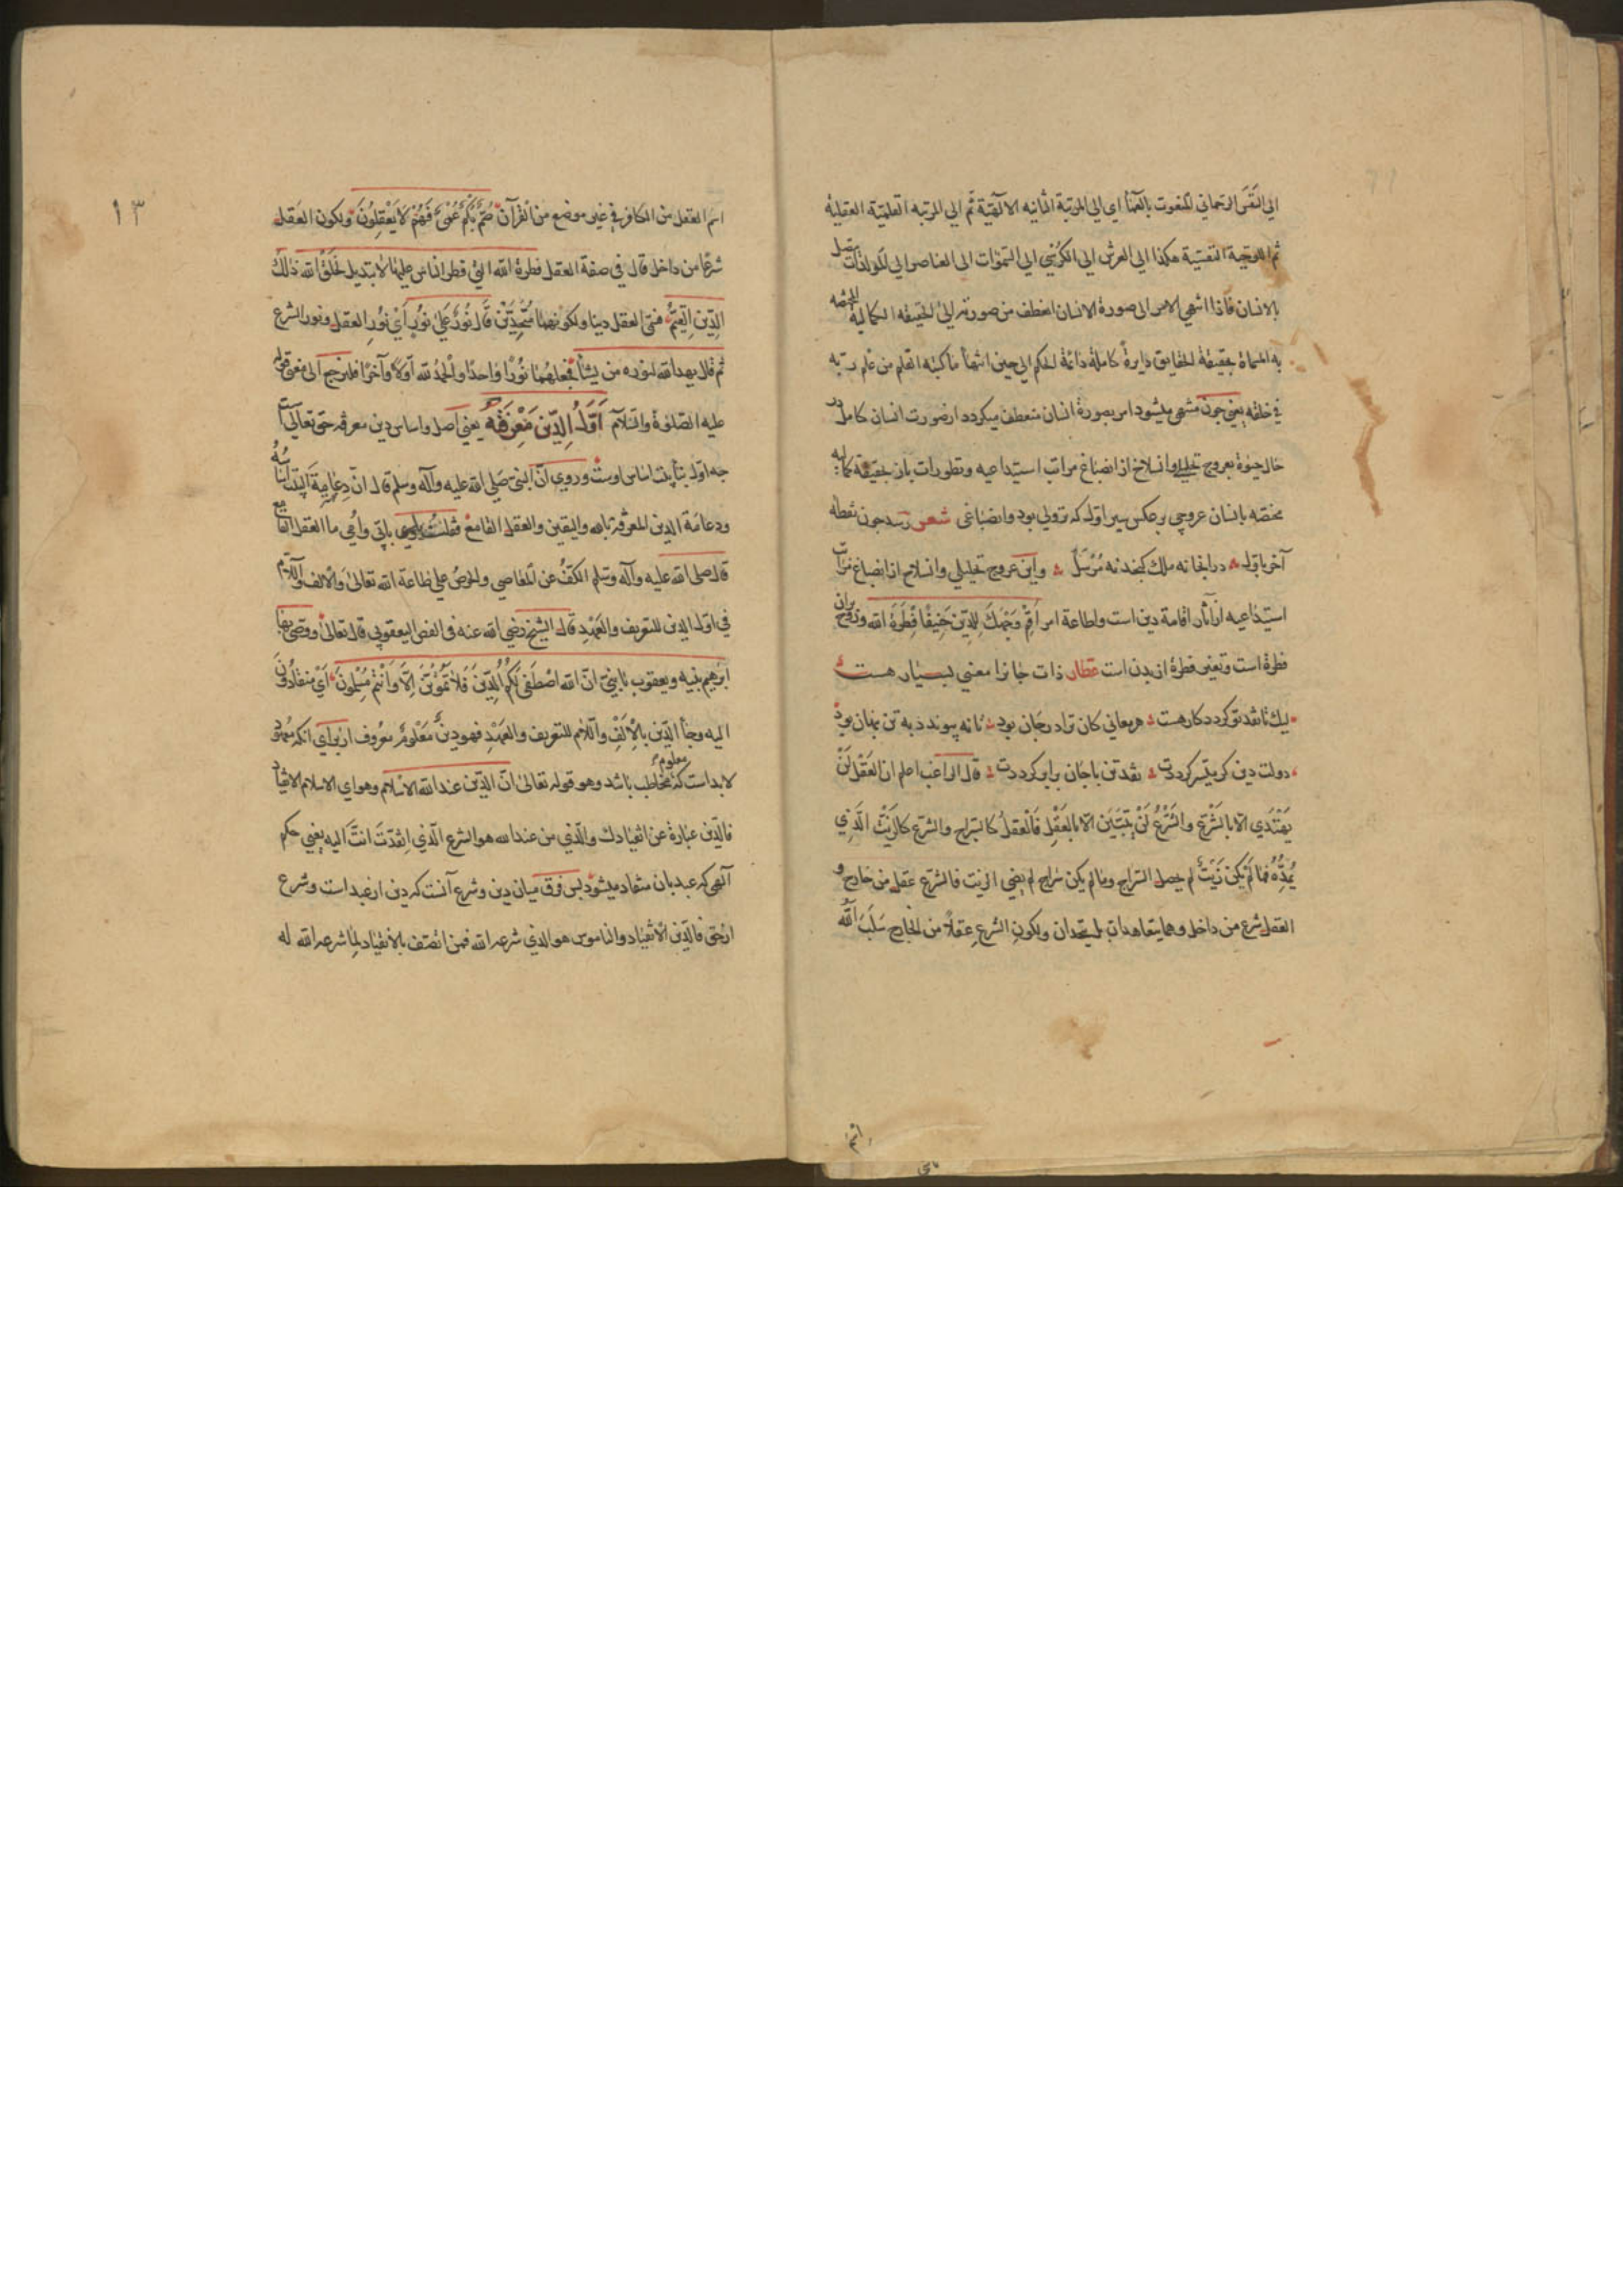 الی النفس الرحمانی المنعوت بالعماء ای الی المرتبة الثانیه الالهیّة ثم الی المرتبه القلمیّة العقلیة
ثم اللوحیة النفسیّة هکذا الی العرش الی الکرسی الی السموات الی العناصر الی المولدات یتصل
بالانسان فاذا انتهی الامر الی صورة الانسان انعطف من صورته الی الحقیقه الکمالیة المختصه
به المسماة بحقیقة الحقایق دایرةً کاملة دائمة الحکم الی حین انتهاء ماکتبه القلم من علم ربه
فی خلقه یعنی چون منتهی میشود امر بصورة انسان منعطف میکردد از صورت انسان کامل در
حال حیوة بعروج تحلیلی وانسلاخ از انصباغ مراتب استیداعیه وتطورات بان حقیقة کمالیه
مختصه بانسان عروجی بر عکس سیر اوّل که نزولی بود وانصباغی شعر رسد چون نقطه
آخر باوّل در انجا نه ملك کنجد نه مُرْسَلْ واین عروج تحلیلی وانسلاخ از انصباغ مراتب
استیداعیه از آثار اقامة دین است ولطاعة امر اَقِمْ وَجْهَكَ لِلدّینِ حَنِیفًا فِطْرَةَ الله وروح
فطرة است وتغیر فطرة از بدن است عطار ذات جانرا معنی بسیار هست
لیك تا نقد تو کردد کار هست هر معانی کان ترا در جان بود تا نه پیوندد به تن پنهان بود
دولت دین کر میسّر کرددت نقد تن با جان برابر کرددت قال الراغب اعلم ان العَقْل لَنْ
یَهْتَدی الّا بالشّرْعِ والشّرْعُ لَنْ یَتَبَیَّنَ الّا بالعَقْلِ فَالْعَقلُ کالسّراج والشّرع کالزّیْتُ الّذی
یُمِدُّهُ فمالَمْ یَکُنْ زَیْتٌ لم یحصل السّراج ومالم یکن سراج لم یضیٔ الزیت فالشّرع عقل من خارج و
العقل شرع من داخل وهما یتعاهدان بل یتّحدان ولکونِ الشّرعِ عقلاً من الخارج سَلَبَ اللّه
اسم
١٣
اسم العقل من الکافر فی غیر موضع من القرآن صُمٌّ بُکْمٌ عُمْیٌ فَهُمْ لَا یَعْقِلُونَ ولکون العَقل
شرعًا من داخل قال فی صفة العقل فطرة الله التی فطر الناس علیها لا تبدیل لِخَلْقِ الله ذالك
الدّین القیّمُ فسمّی العقل دینا ولکونهما مُتَّحِدَیْنِ قال نُورٌ عَلیٰ نُورٍ اَیْ نورُ العقل ونور الشرع
ثم قال یهد الله لنوره من یشآء فجعلهُما نُورًا وَاحدًا والْحَمْدُ لله اَوّلاً وآخرًا فلنرجع الی معنی قوله
علیه الصّلوةُ والسّلام اَوّلُ الدّین مَعْرِفَتُهُ یعنی اصل واساس دین معرفه حق تعالی است
چه اوّل بنا پیت اساس اوست وروی انّ النبیّ صَلی الله علیه وآله وسلم قال انّ دِعَامةَ البیت اساسه
ودعامَة الدین المعرفة بالله والیقین والعقل القامع فقلت بابی وامّی ما العقل القامع
قال صلی الله علیه وآله وسلم الکَفُّ عن المعَاصی والحِرصُ علی طاعة الله تعالیٰ والالف واللّام
فی اوّل الدین للتعریف والعَهْدِ قال الشیخ رضی الله عنه فی الفصّ الیعقوبی قال تعالیٰ ووَصّیٰ بها
ابرهیم بنیه ویعقوب یا بنیّ انّ الله اصْطَفیٰ لَکُمُ الدّینَ فَلَا تَمُوتُنَّ اِلّا وَاَنْتُمْ مُسْلِمُونَ اَیْ منقادُونَ
الیه وجاء الدّین بالْاَلفِ واللام للتعریف والعَهْدِ فهو دینٌ مَعْلومٌ معروف از برای انکه معهود
لابد است که معلوم مخاطب باشد وهو قوله تعالیٰ انّ الدّین عند الله الاسْلام وهو ای الاسلام الانقیاد
فالدّین عبارة عن انقیادك والّذی من عند الله هو الشرع الّذی انقدْتَ انتَ الیه یعنی حکم
الهی که عبد بان منقاد میشود پس فرق میان دین وشرع آنست که دین از عبد است وشرع
از حق فالدّین الانقیاد والناموس هو الذی شرعه الله فمن اتّصف بالانقیاد لِما شرعه الله له